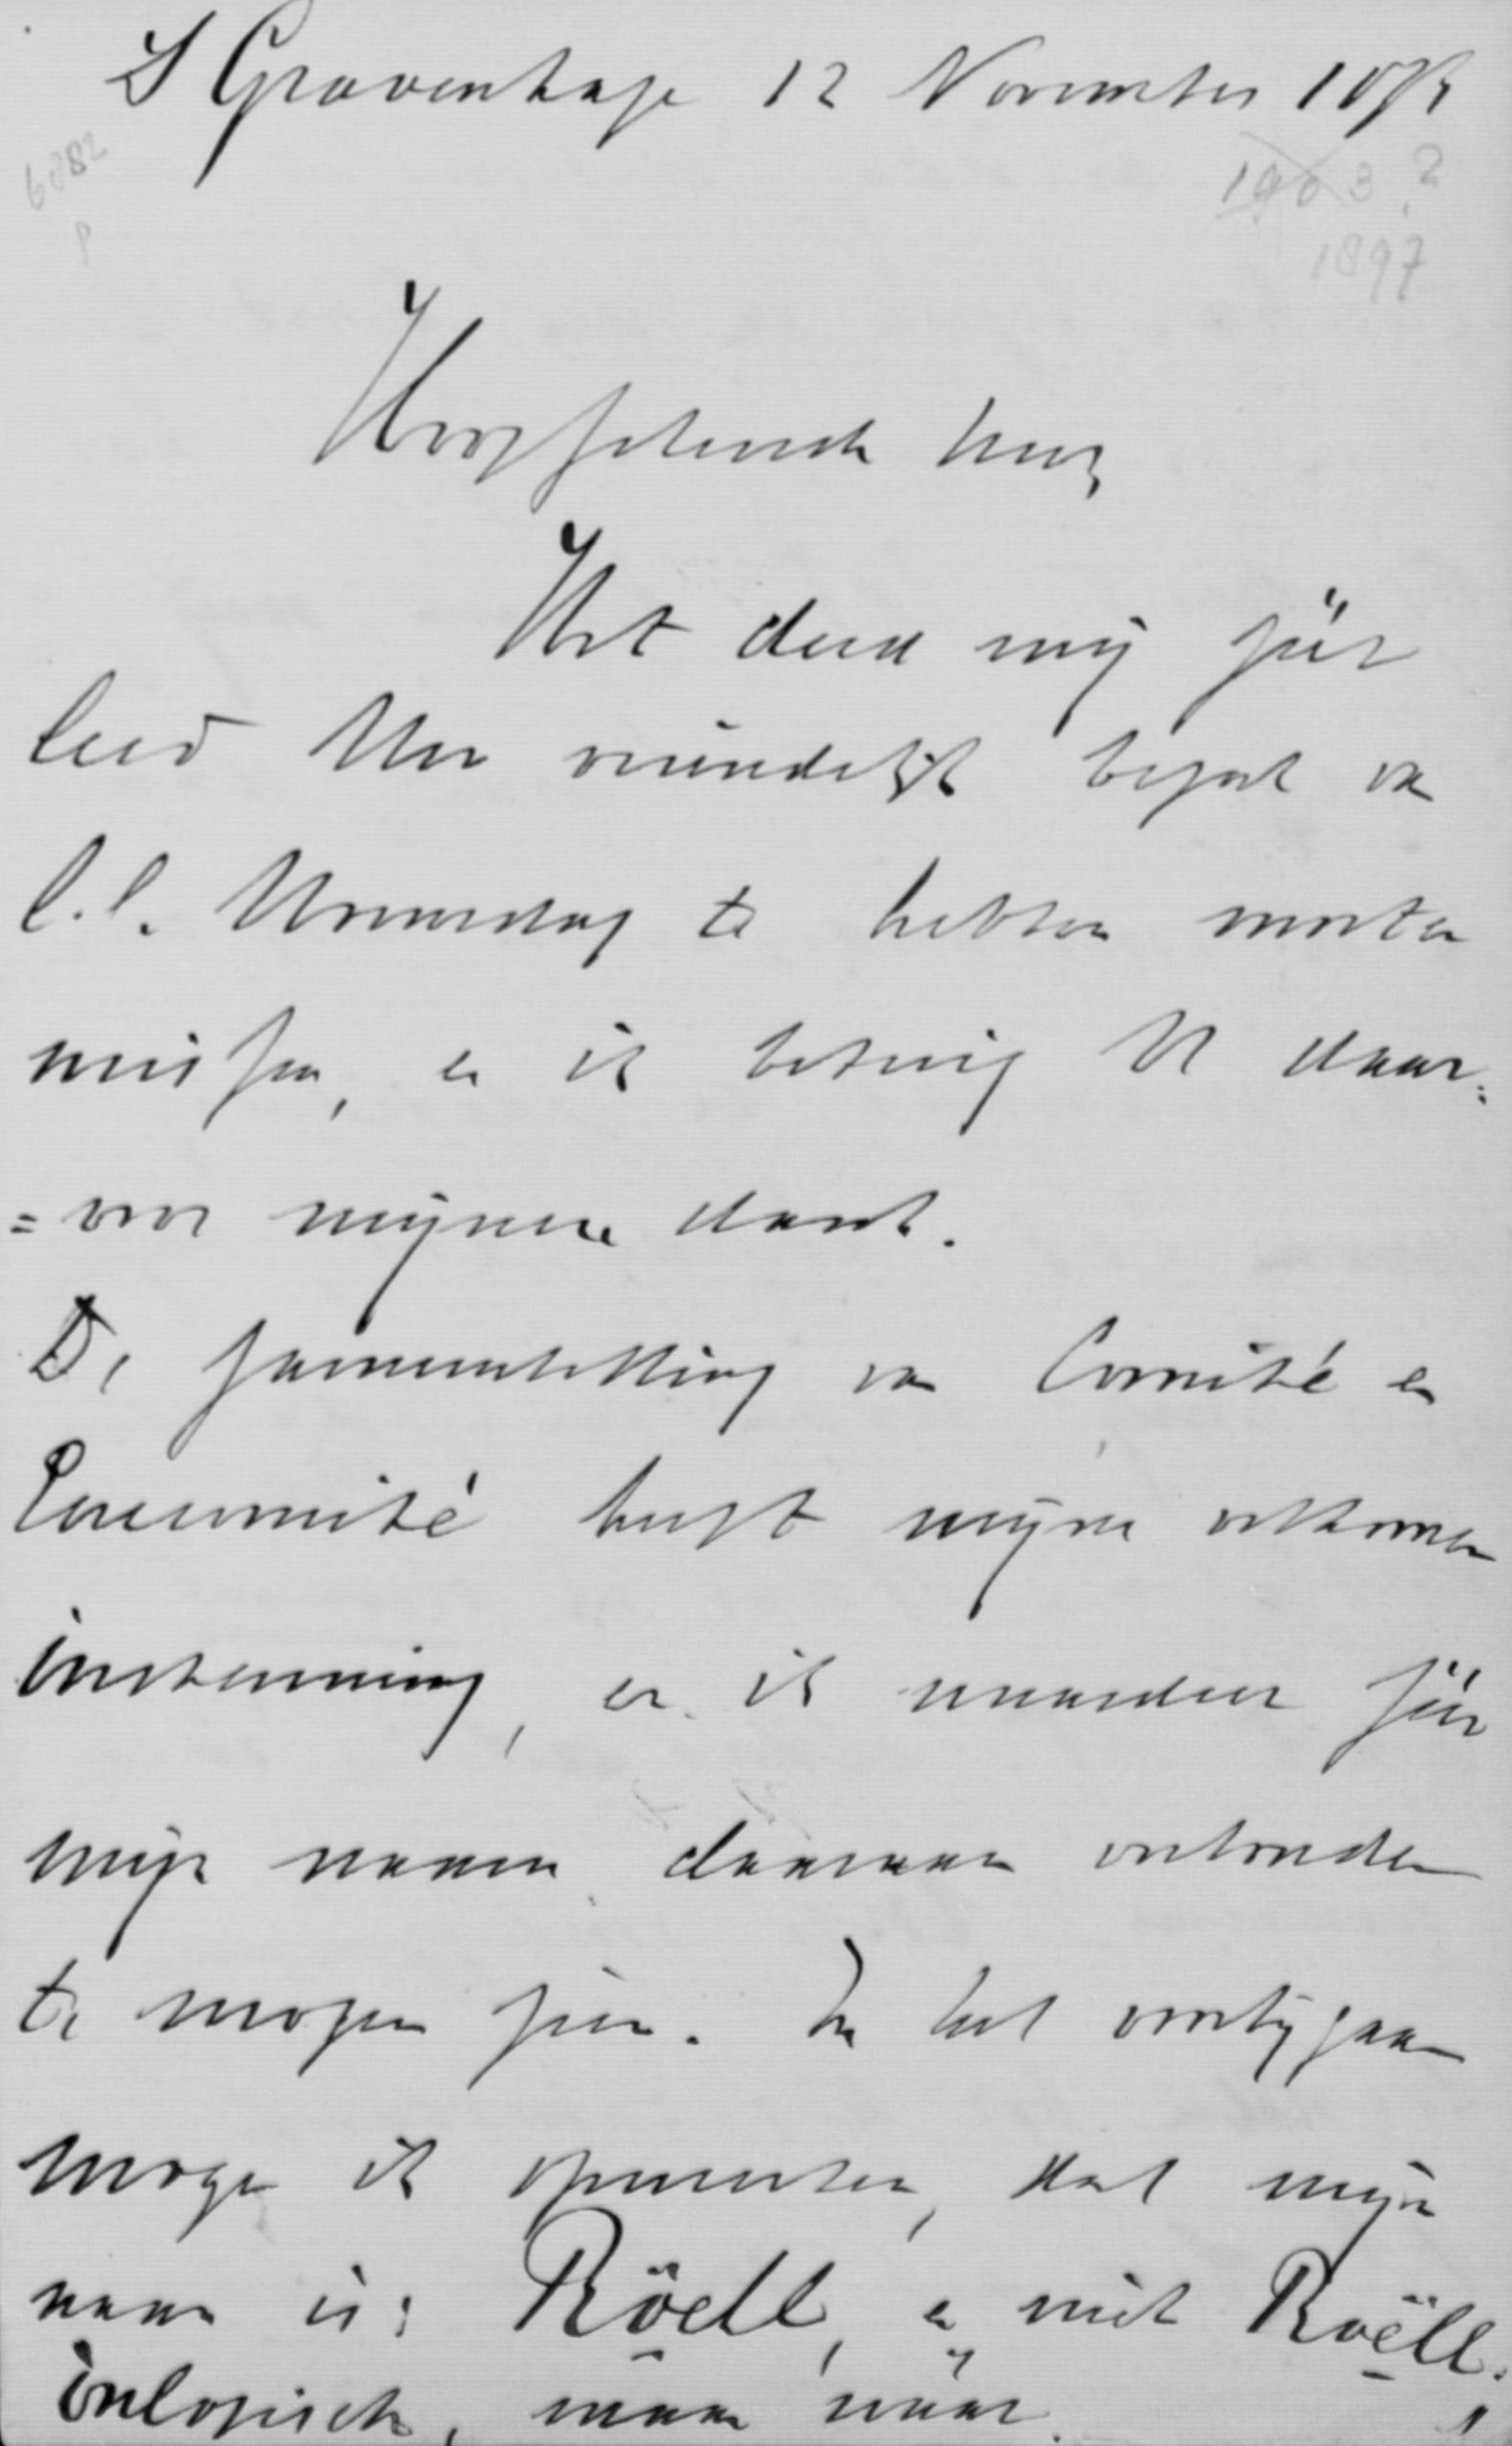 S Gravenhage 12 November 1897
6882
1903 ?
P
1897
Hooggeachte heer,
Het deed mij zéér
leed Uw vriendelijk bezoek van
l.l. Woensdag te hebben moeten
missen, en ik betuig U daar:
=voor mijnen dank.
De samenstelling van Comité en
Eerecomité heeft mijne volkomen
instemming, en ik waardeer zéér
mijn naam daaraan verbonden
te mogen zien. In het voorbijgaan
moge ik opmerken, dat mijn
naam is: Röell, en niet Roëll.
onlogisch, maar waar.